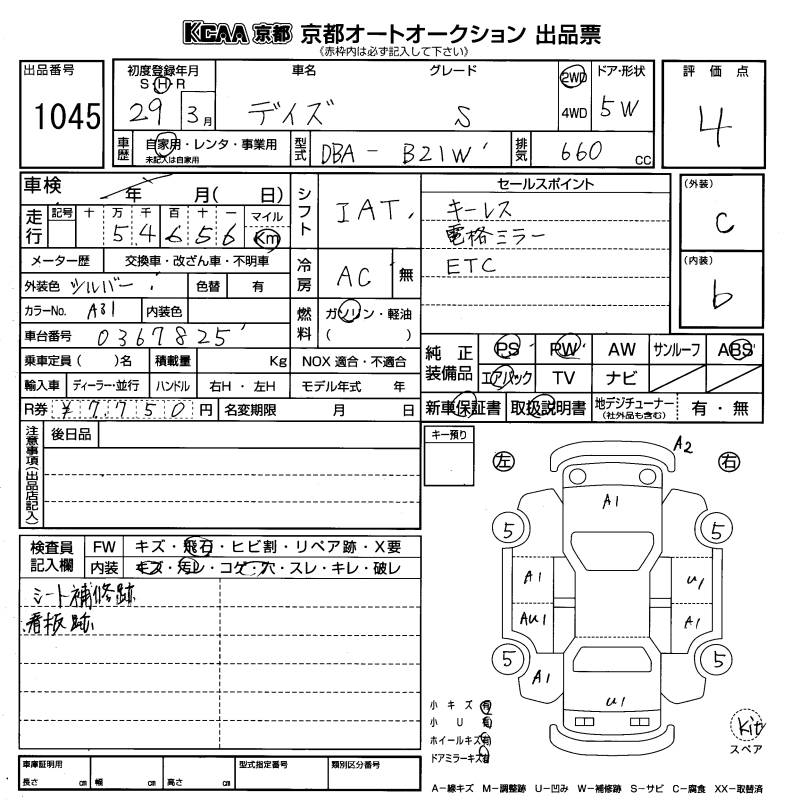 KCAA 京都 京都オートオークション 出品票
(赤枠内は必ず記入して下さい)
出品番号 1045
初度登録年月 S・H・R 29 3月
車名 デイズ
グレード S
2WD 4WD
ドア・形状 5W
評価点 4
車歴 自家用・レンタ・事業用 未記入は自家用
型式 DBA - B21W
排気 660 cc
車検 年 月( 日)
シフト IAT
セールスポイント
キーレス
電格ミラー
ETC
(外装) C
(内装) b
走行 記号 十 万 千 百 十 一 マイル
54656 Km
メーター歴 交換車・改ざん車・不明車
冷房 AC 無
外装色 シルバー 色替 有
カラーNo. A31 内装色
燃料 ガソリン・軽油 ( )
車台番号 0367825
乗車定員( )名 積載量 Kg NOX 適合・不適合
輸入車 ディーラー・並行 ハンドル 右H・左H モデル年式 年
R券 ¥7750円 名変期限 月 日
純正装備品 PS PW AW サンルーフ ABS
エアバック TV ナビ
新車保証書 取扱説明書 地デジチューナー (社外品も含む) 有・無
注意事項(出品店記入)
後日品
キー預り
左 右
A2
A1
5 5
A1 U1
AU1 A1
5 5
A1
U1
検査員記入欄 FW キズ・飛石・ヒビ割・リペア跡・X要
内装 キズ・汚レ・コゲ・穴・スレ・キレ・破レ
シート補修跡
看板跡
小キズ 有
小U 有
ホイールキズ 有
ドアミラーキズ 有
Kit
スペア
車庫証明用 長さ cm 幅 cm 高さ cm
型式指定番号
類別区分番号
A-線キズ M-調整跡 U-凹み W-補修跡 S-サビ C-腐食 XX-取替済